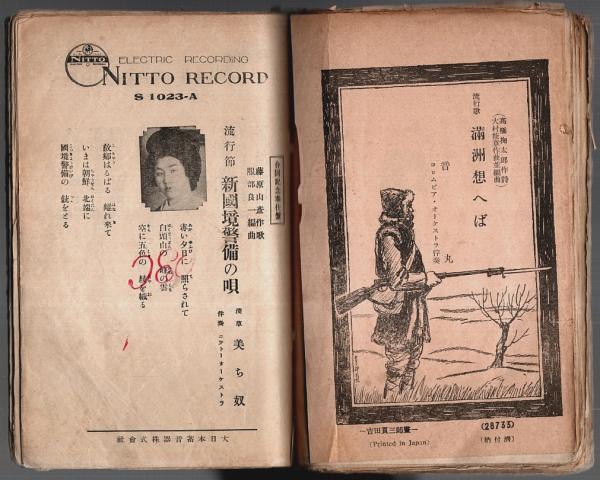 NITTO
ELECTRIC RECORDING
NITTO RECORD
S 1023-A
合同記念奉仕盤
藤原山彦作歌
服部良一編曲
流行節 新國境警備の唄
淺草 美ち奴
伴奏 ニットーオーケストラ
赤い夕日に 照らされて
白頭山の 峰の雲
空に五色の 絲を織る
故郷はるばる 離れ來て
いまは朝鮮 北端に
國境警備の 銃をとる
大日本蓄音器株式會社
(高橋掬太郎作詩)
(大村能章作曲並編曲)
流行歌 滿洲想へば
音丸
コロムビア・オーケストラ伴奏
—吉田貫三郎畫—
(Printed in Japan)
(28733)
(濟付納)